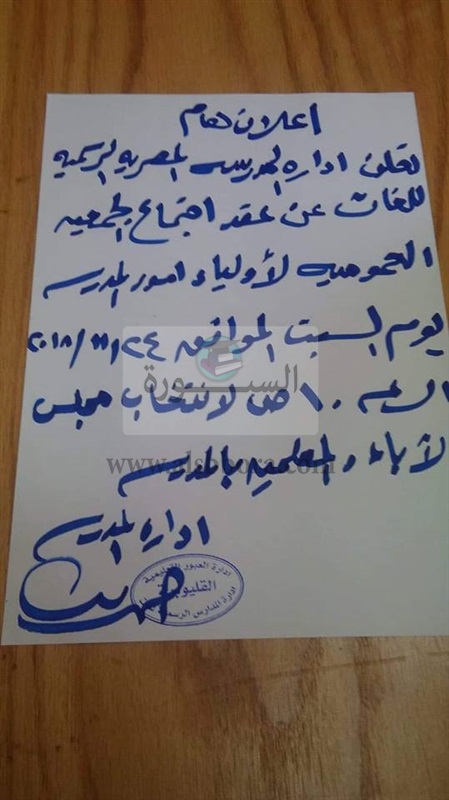 اعلان هام
تعلن اداره المدرسه المصريه الرسميه
للغات عن عقد اجتماع الجمعيه
العموميه لأولياء امور المدرسه
يوم السبت الموافق ٢٤/١١/٢٠١٨
الساعه ١٠ ص لانتخاب مجلس
الآباء والمعلمين بالمدرسه
اداره المدرسه
السبورة
www.alsbbora.com
ادارة العبور التعليمية
القليوبية
ادارة المدارس الرسمية